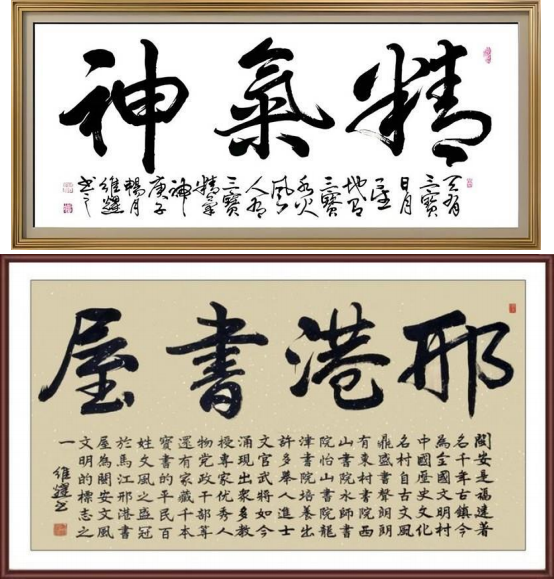 精氣神
天有
三寶
日月
星
地有
三寶
水火
風
人有
三寶
精氣
神
庚子
暢月
維躍
書之
邢港書屋
閩安是福建著
名千年古鎮今
為全國文明村
中國歷史文化
名村自古文風
鼎盛書聲朗朗
有東村書院西
山書院水師書
院怡山書院龍
津書院培養出
許多舉人進士
文官武將如今
涌現出眾多教
授專家優秀人
物党政干部等
還有家藏千本
寶書的平民百
姓文風之盛冠
於馬江邢港書
屋為閩安文風
文明的標志之
一
維躍書